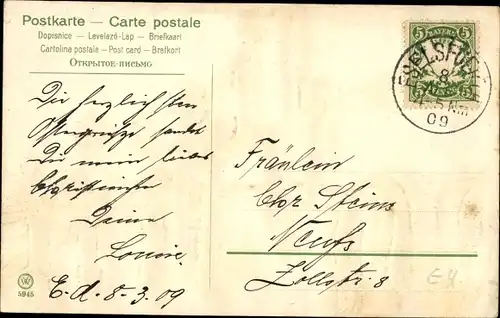 Postkarte — Carte postale
Dopisnice — Levelező-Lap — Briefkaart
Cartolina postale — Post card — Brefkort
Открытое-письмо
BAYERN
5 5
5 5
8
09
Die herzlichsten
Ostergrüße sendet
Dir mein liebes
Christinche
Deine
Louise.
E. d. 8-3.09
Fräulein
Chr Steins
Neufs
Zollstr. 8
5945
E4